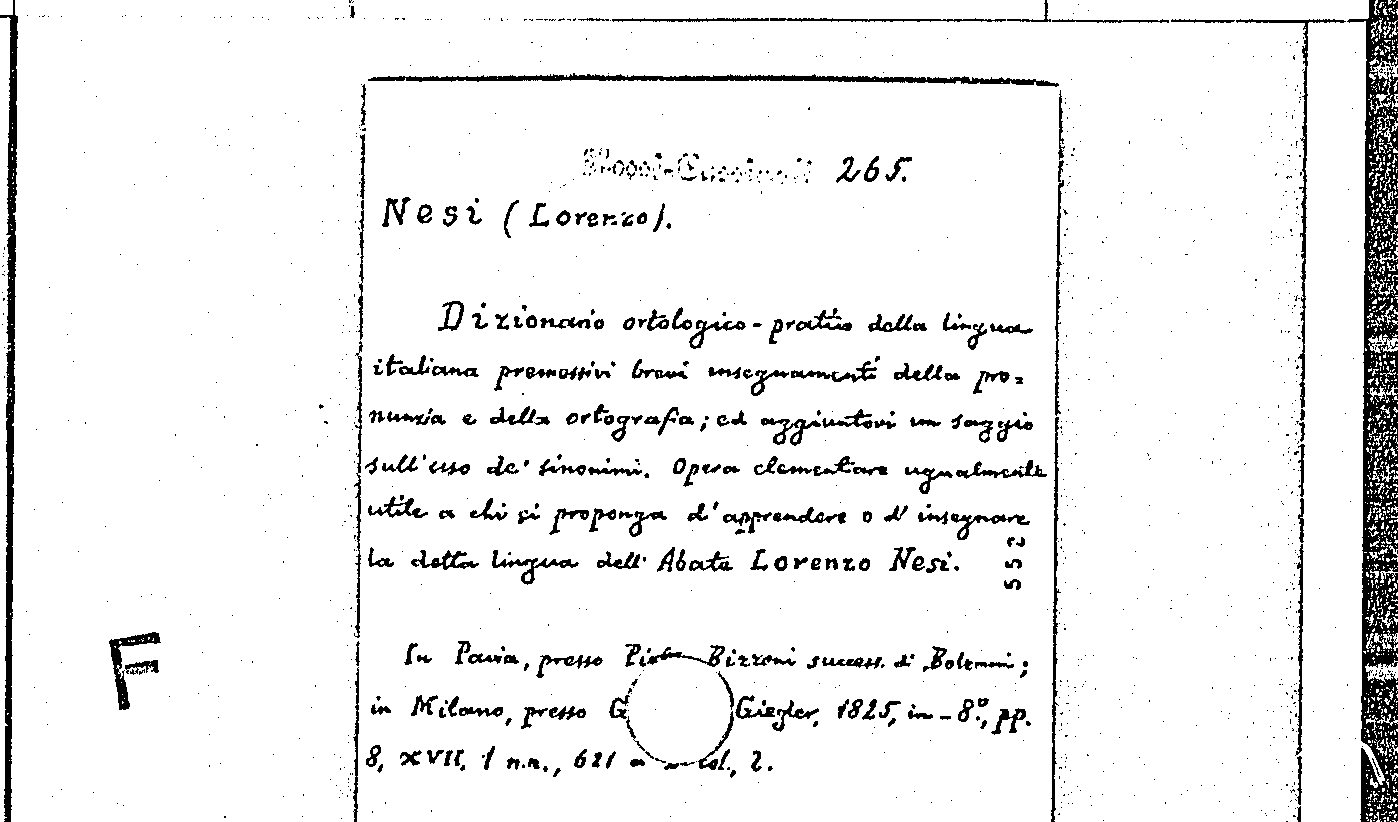 Rossi-Cassigoli 265.
Nesi (Lorenzo).
Dizionario ortologico-pratico della lingua
italiana premessivi brevi insegnamenti della pro=
nunzia e della ortografia; ed aggiuntovi un saggio
sull'uso de' sinonimi. Opera elementare ugualmente
utile a chi si proponga d'apprendere o d'insegnare
la detta lingua dell'Abate Lorenzo Nesi.
552
In Pavia, presso Pietro Bizzoni success. di Bolzani;
in Milano, presso G Giegler, 1825, in-8°, pp.
8, XVII, 1 n.n., 621 a col., 2.
F